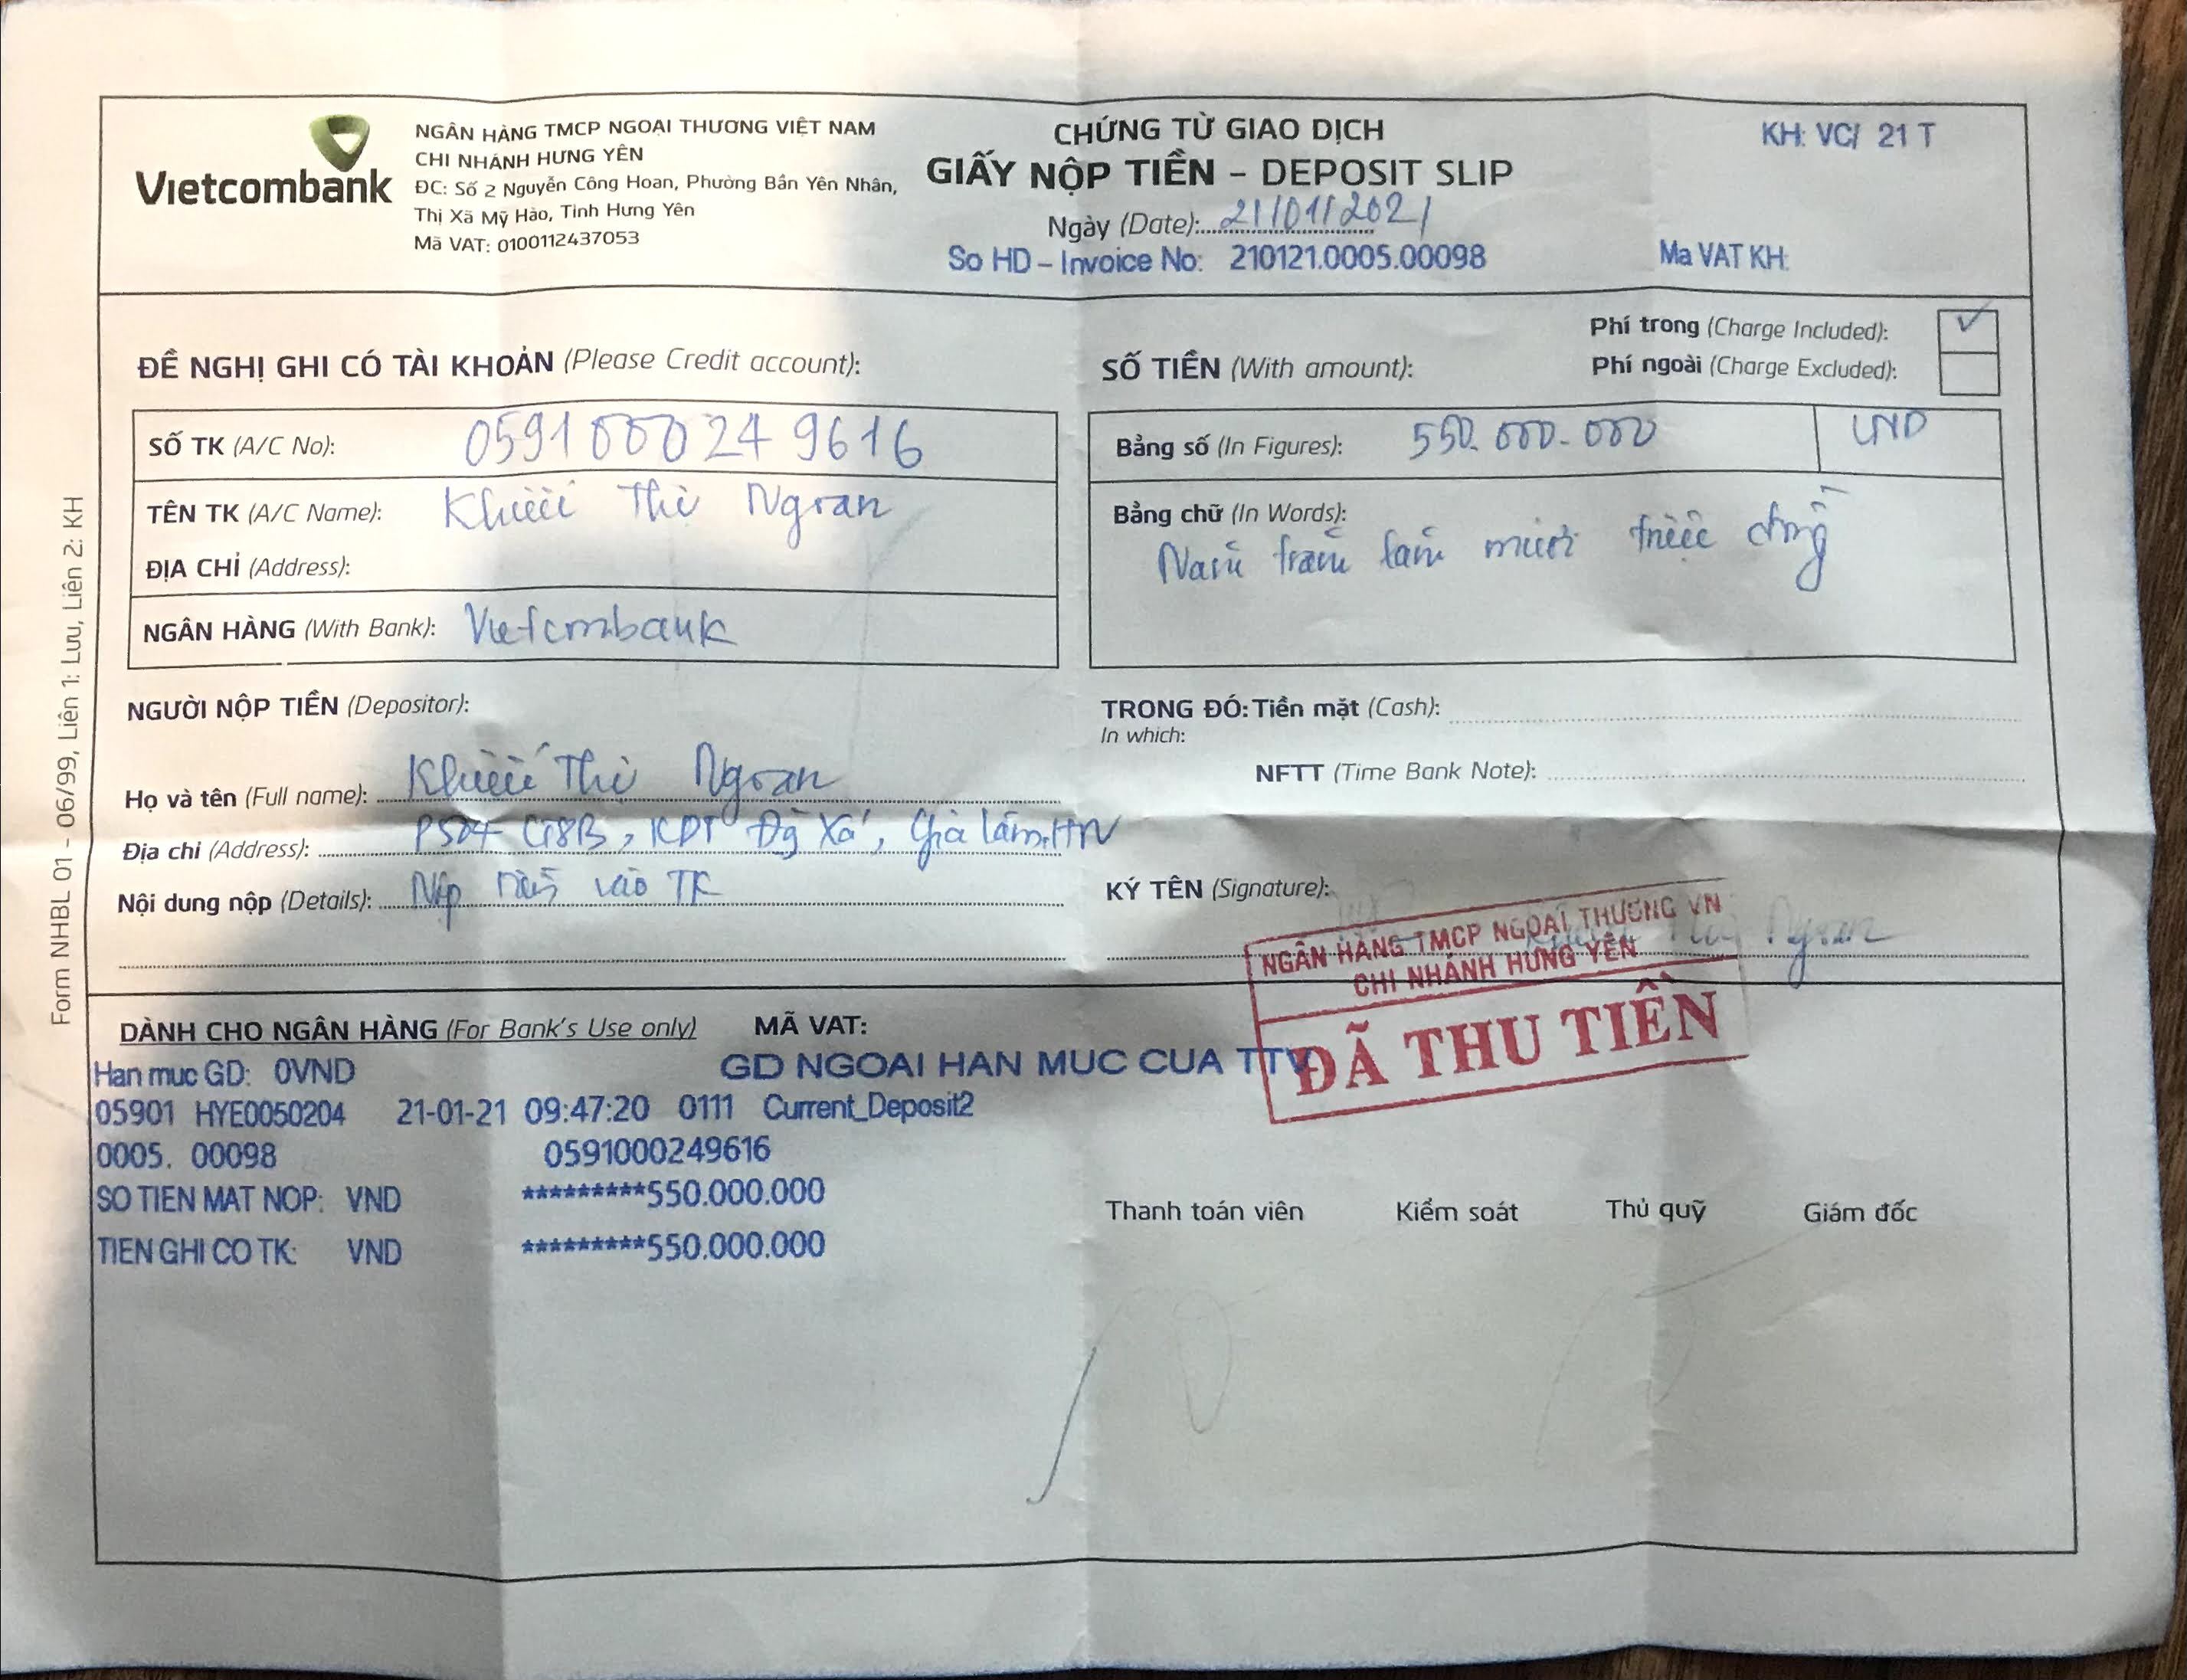 Vietcombank
NGÂN HÀNG TMCP NGOẠI THƯƠNG VIỆT NAM
CHI NHÁNH HƯNG YÊN
ĐC: Số 2 Nguyễn Công Hoan, Phường Bần Yên Nhân,
Thị Xã Mỹ Hào, Tỉnh Hưng Yên
Mã VAT: 0100112437053
CHỨNG TỪ GIAO DỊCH
GIẤY NỘP TIỀN - DEPOSIT SLIP
Ngày (Date): 21/01/2021
So HD - Invoice No: 210121.0005.00098
KH: VC/ 21 T
Ma VAT KH:
ĐỀ NGHỊ GHI CÓ TÀI KHOẢN (Please Credit account):
SỐ TK (A/C No): 0591000249616
TÊN TK (A/C Name): Khiếu Thị Ngoan
ĐỊA CHỈ (Address):
NGÂN HÀNG (With Bank): Vietcombank
SỐ TIỀN (With amount):
Phí trong (Charge Included): ✓
Phí ngoài (Charge Excluded):
Bằng số (In Figures): 550.000.000 VND
Bằng chữ (In Words):
Năm trăm năm mươi triệu đồng
NGƯỜI NỘP TIỀN (Depositor):
Họ và tên (Full name): Khiếu Thị Ngoan
Địa chỉ (Address): P504 CT8B, KĐT Đặng Xá, Gia Lâm, HN
Nội dung nộp (Details): Nộp tiền vào TK
TRONG ĐÓ: Tiền mặt (Cash):
In which:
NFTT (Time Bank Note):
KÝ TÊN (Signature):
Ngoan
NGÂN HÀNG TMCP NGOẠI THƯƠNG VN
CHI NHÁNH HƯNG YÊN
ĐÃ THU TIỀN
DÀNH CHO NGÂN HÀNG (For Bank's Use only) MÃ VAT:
Han muc GD: 0VND GD NGOAI HAN MUC CUA TTV
05901 HYE0050204 21-01-21 09:47:20 0111 Current_Deposit2
0005. 00098 0591000249616
SO TIEN MAT NOP: VND *********550.000.000
TIEN GHI CO TK: VND *********550.000.000
Thanh toán viên Kiểm soát Thủ quỹ Giám đốc
Form NHBL 01 - 06/99, Liên 1: Lưu, Liên 2: KH